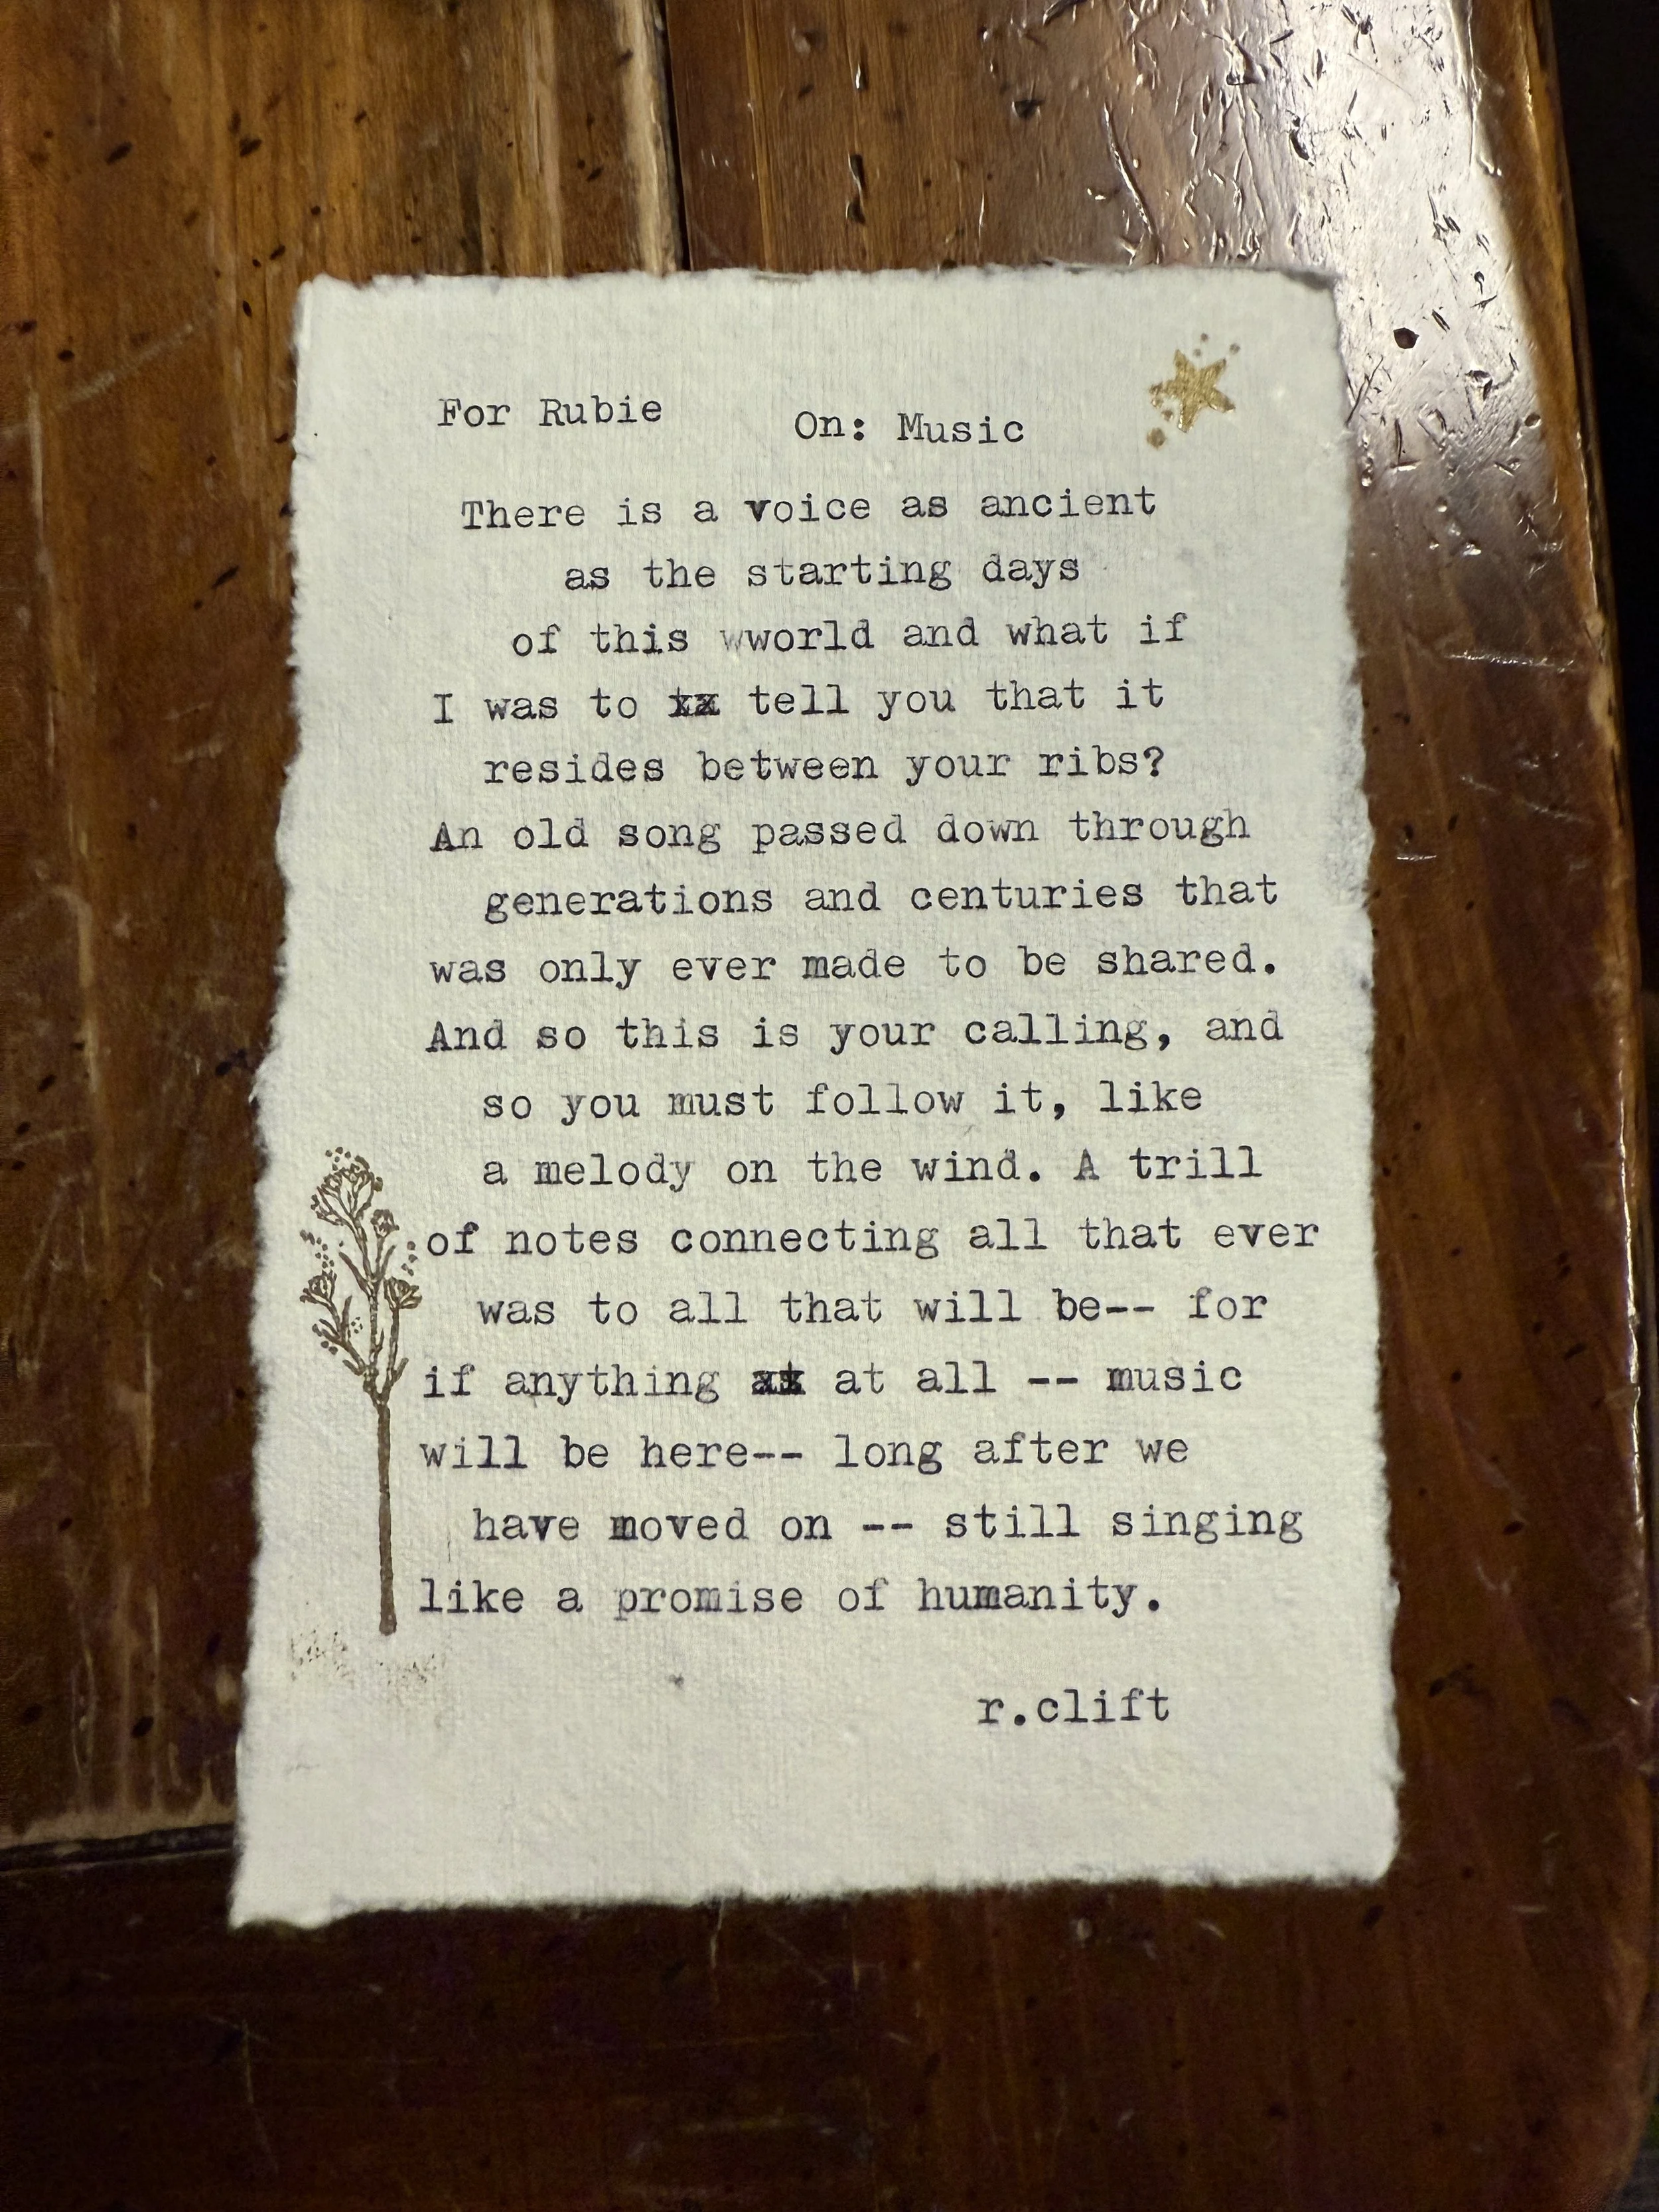 For Rubie On: Music
There is a voice as ancient
as the starting days
of this wworld and what if
I was to tell you that it
resides between your ribs?
An old song passed down through
generations and centuries that
was only ever made to be shared.
And so this is your calling, and
so you must follow it, like
a melody on the wind. A trill
of notes connecting all that ever
was to all that will be-- for
if anything at all -- music
will be here-- long after we
have moved on -- still singing
like a promise of humanity.
r.clift